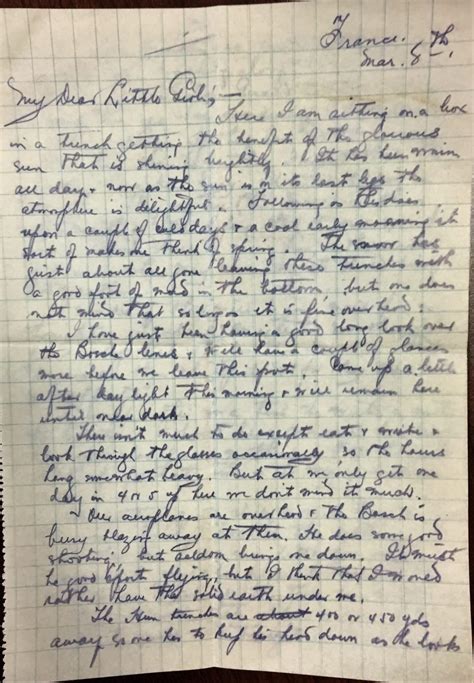 France.
Mar. 8th.
My Dear Little Girlie
Here I am sitting on a box
in a trench getting the benefit of the glorious
sun that is shining brightly. It has been warm
all day & now as the sun is on its last legs the
atmosphere is delightful. Following as this does
upon a couple of cold days & a cool early morning it
sort of makes one think of spring. The snow has
just about all gone leaving these trenches with
a good foot of mud in the bottom, but one does
not mind that so long as it is fine overhead.
I have just been having a good long look over
the Bosch lines & will have a couple of glances
more before we leave this front. Came up a little
after day light this morning & will remain here
until near dark.
There isn't much to do except eat & write &
look through the glasses occasionally so the hours
hang somewhat heavy. But as we only get one
day in 4 or 5 up here we don't mind it much.
Our aeroplanes are overhead & the Bosch is
busy blazing away at them. He does some good
shooting, but seldom brings one down. It must
be good sport flying, but I think that I would
rather have the solid earth under me.
The Hun trenches are about 400 or 450 yds
away so one has to keep his head down as he looks